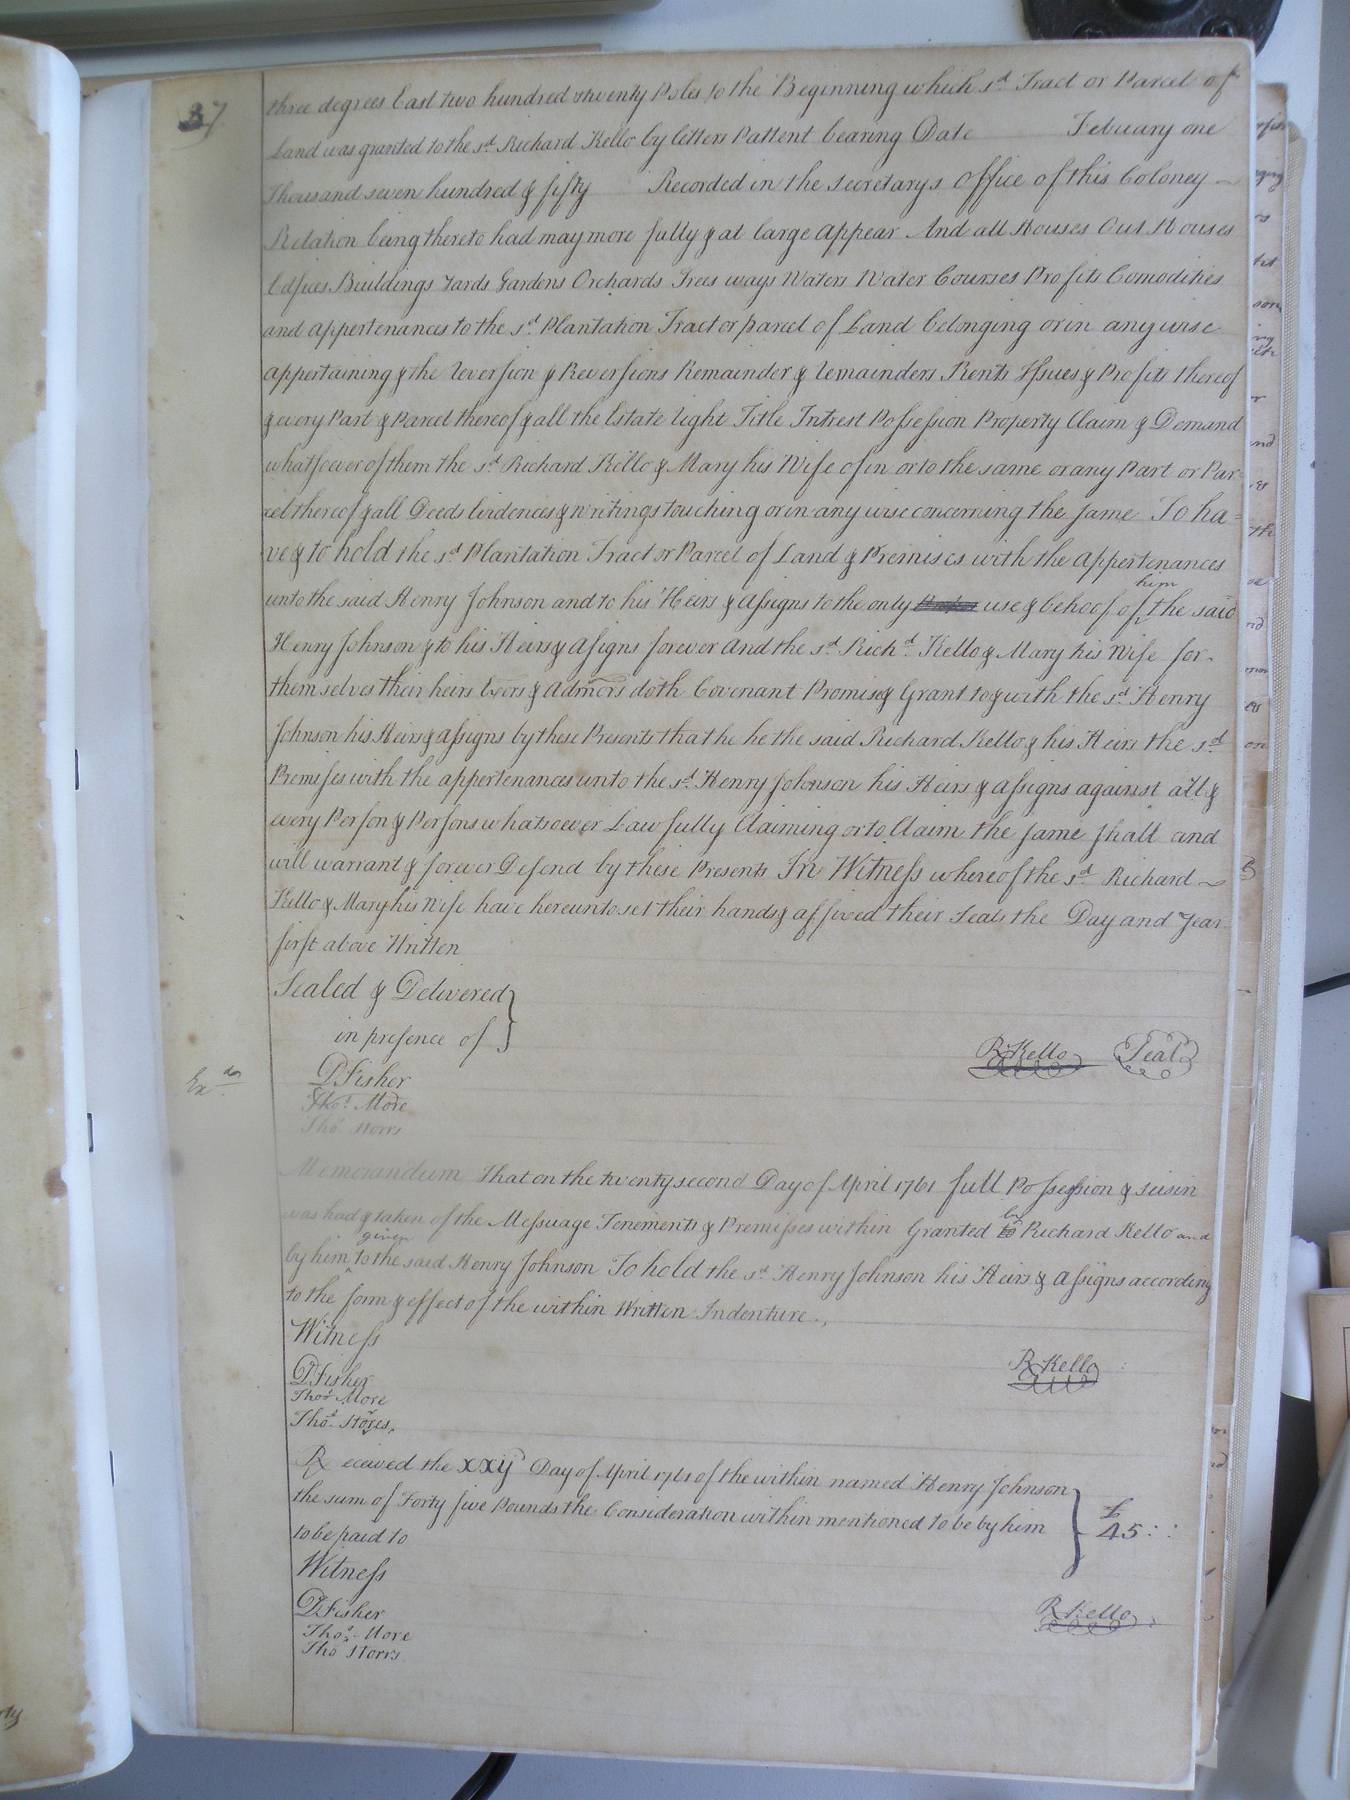 37
three degrees East two hundred & twenty Poles to the Beginning which sd Tract or Parcel of
Land was granted to the sd Richard Kello by letters Pattent bearing Date February one
Thousand seven hundred & fifty Recorded in the secretarys Office of this Coloney
Relation being thereto had may more fully & at large appear And all Houses Out Houses
Edifices Buildings Yards Gardens Orchards Trees ways Waters Water Courses Profits Comodities
and appertenances to the sd Plantation Tract or parcel of Land belonging or in any wise
appertaining & the reversion & Reversions Remainder & remainders Rents Issues & Profits thereof
& every Part & Parcel thereof & all the Estate right Title Intrest Possession Property Claim & Demand
whatsoever of them the sd Richard Kello & Mary his Wife of in or to the same or any Part or Par-
cel thereof & all Deeds Evidences & writings touching or in any wise concerning the same To ha=
ve & to hold the sd Plantation Tract or Parcel of Land & Premises with the appertenances
him
unto the said Henry Johnson and to his Heirs & assigns to the only use & behoof of the said
Henry Johnson & to his Heirs & assigns forever and the sd Richd Kello & Mary his Wife for
themselves their heirs Exors & Admors doth Covenant Promise & Grant to & with the sd Henry
Johnson his Heirs & assigns by these Presents that he he the said Richard Kello & his Heirs the sd
Premises with the appertenances unto the sd Henry Johnson his Heirs & assigns against all &
every Person & Persons whatsoever Lawfully Claiming or to Claim the same shall and
will warrant & forever Defend by these Presents In Witness whereof the sd Richard
Kello & Mary his Wife have hereunto set their hands & affixed their Seals the Day and Year
first above Written
Sealed & Delivered
in presence of
R Kello Seal
Exd
D Fisher
Thos More
Tho Storrs
Memorandum That on the twenty second Day of April 1761 full Possession & seisin
was had & taken of the Messuage Tenements & Premisses within Granted by Richard Kello and
given
by him to the said Henry Johnson To hold the sd Henry Johnson his Heirs & assigns according
to the form & effect of the within Written Indenture.
Witness
R Kello
D Fisher
Thos More
Thos Stores
Received the xxij Day of April 1761 of the within named Henry Johnson
the sum of Forty five Pounds the Consideration within mentioned to be by him
to be paid to
£ 45
Witness
R Kello
D Fisher
Thos More
Tho Storrs